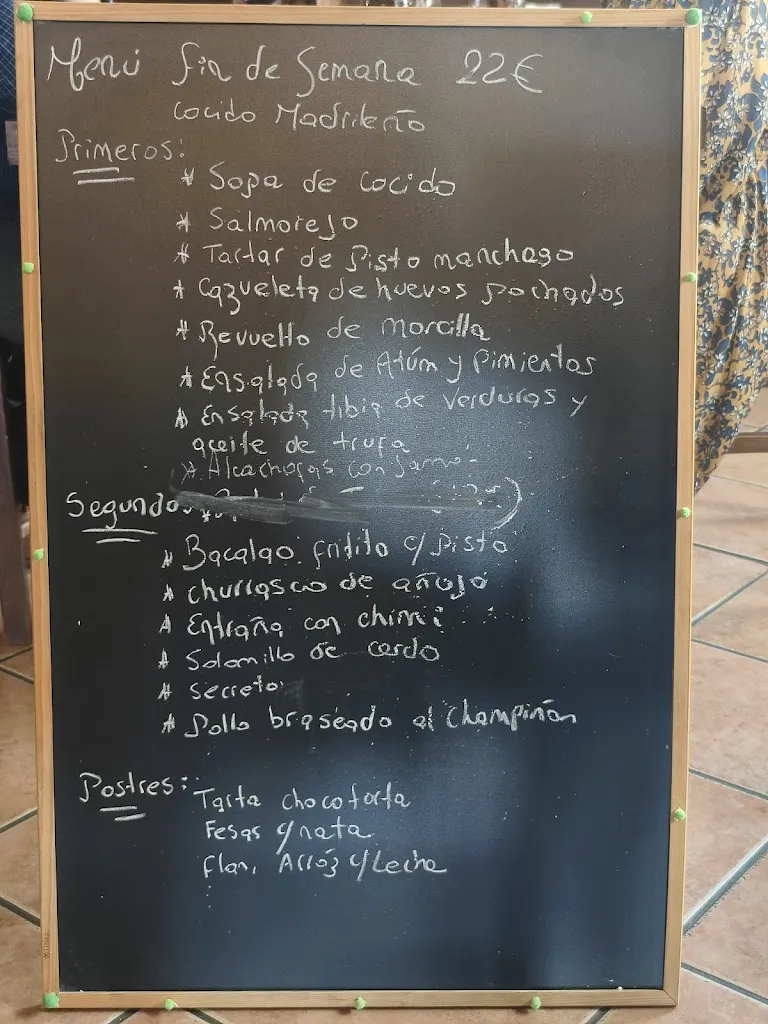 Menú fin de Semana 22€
Cocido Madrileño
Primeros:
* Sopa de cocido
* Salmorejo
* Tartar de Pisto manchego
* Cazueleta de huevos pochados
* Revuelto de morcilla
* Ensalada de Atúm y Pimientos
* Ensalada tibia de verduras y
aceite de trufa
* Alcachofas con Jamo
Segundo
* Bacalao fritito c/ Pisto
* churrasco de añojo
* Entraña con chimi
* Solomillo de cerdo
* Secreto
* Pollo braseado al Champiñón
Postres:
Tarta chocotorta
Fesas c/nata
Flan, Arróz c/Leche